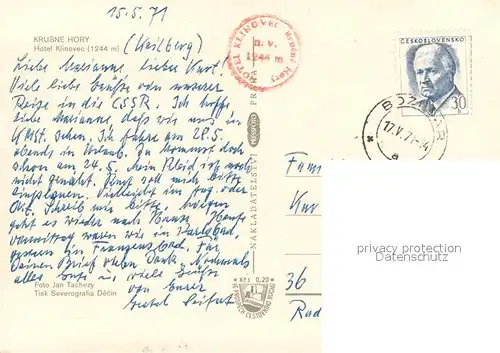 15.5.71
KRUŠNÉ HORY
Hotel Klínovec (1244 m) (Keilberg)
Liebe Marianne, lieber Kurt!
Viele liebe Grüße von unserer
Reise in die ČSSR. Ich hoffe
liebe Marianne, daß wir uns in
KMSt. sehen. Ich fahre am 28.5.
abends in Urlaub. Du kommst doch
schon am 24.5. Mein Kleid ist noch
nicht genäht. Hanst soll mich bitte
einplanen. Vielleicht im Aug. oder
Okt. Schreib mir bitte. Morgen
geht es wieder nach Hause. Heute
vormittag waren wir in Karlsbad,
gestern in Franzensbad. Für
Deinen Brief vielen Dank. Nochmals
alles Gute u. viele Grüße
von Eurer
Gretel Seifert
Foto Jan Tachezy
Tisk Severografia Děčín
HOTEL KLÍNOVEC Krušné Hory
n. v.
1244 m
NAKLADATELSTVÍ PRESSFOTO PRAHA
Kčs 0,20
ČESKOSLOVENSKO
30
h
17.V.71-14
a
Fam
Kur
36
Rad
privacy protection
Datenschutz